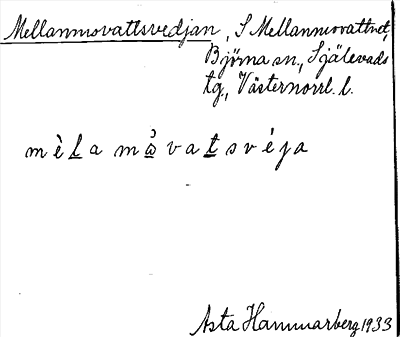 Mellanmovattsvedjan, S Mellanmovattnet,
Björna sn., Själevads
tg., Västernorrl. l.
mèl̲a mω̲̉vat̲svéja
Asta Hammarberg 1933